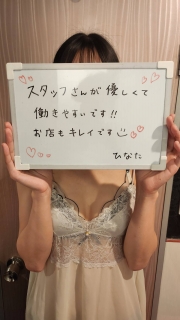 スタッフさんが優しくて
働きやすいです!!
お店もキレイです
ひなた